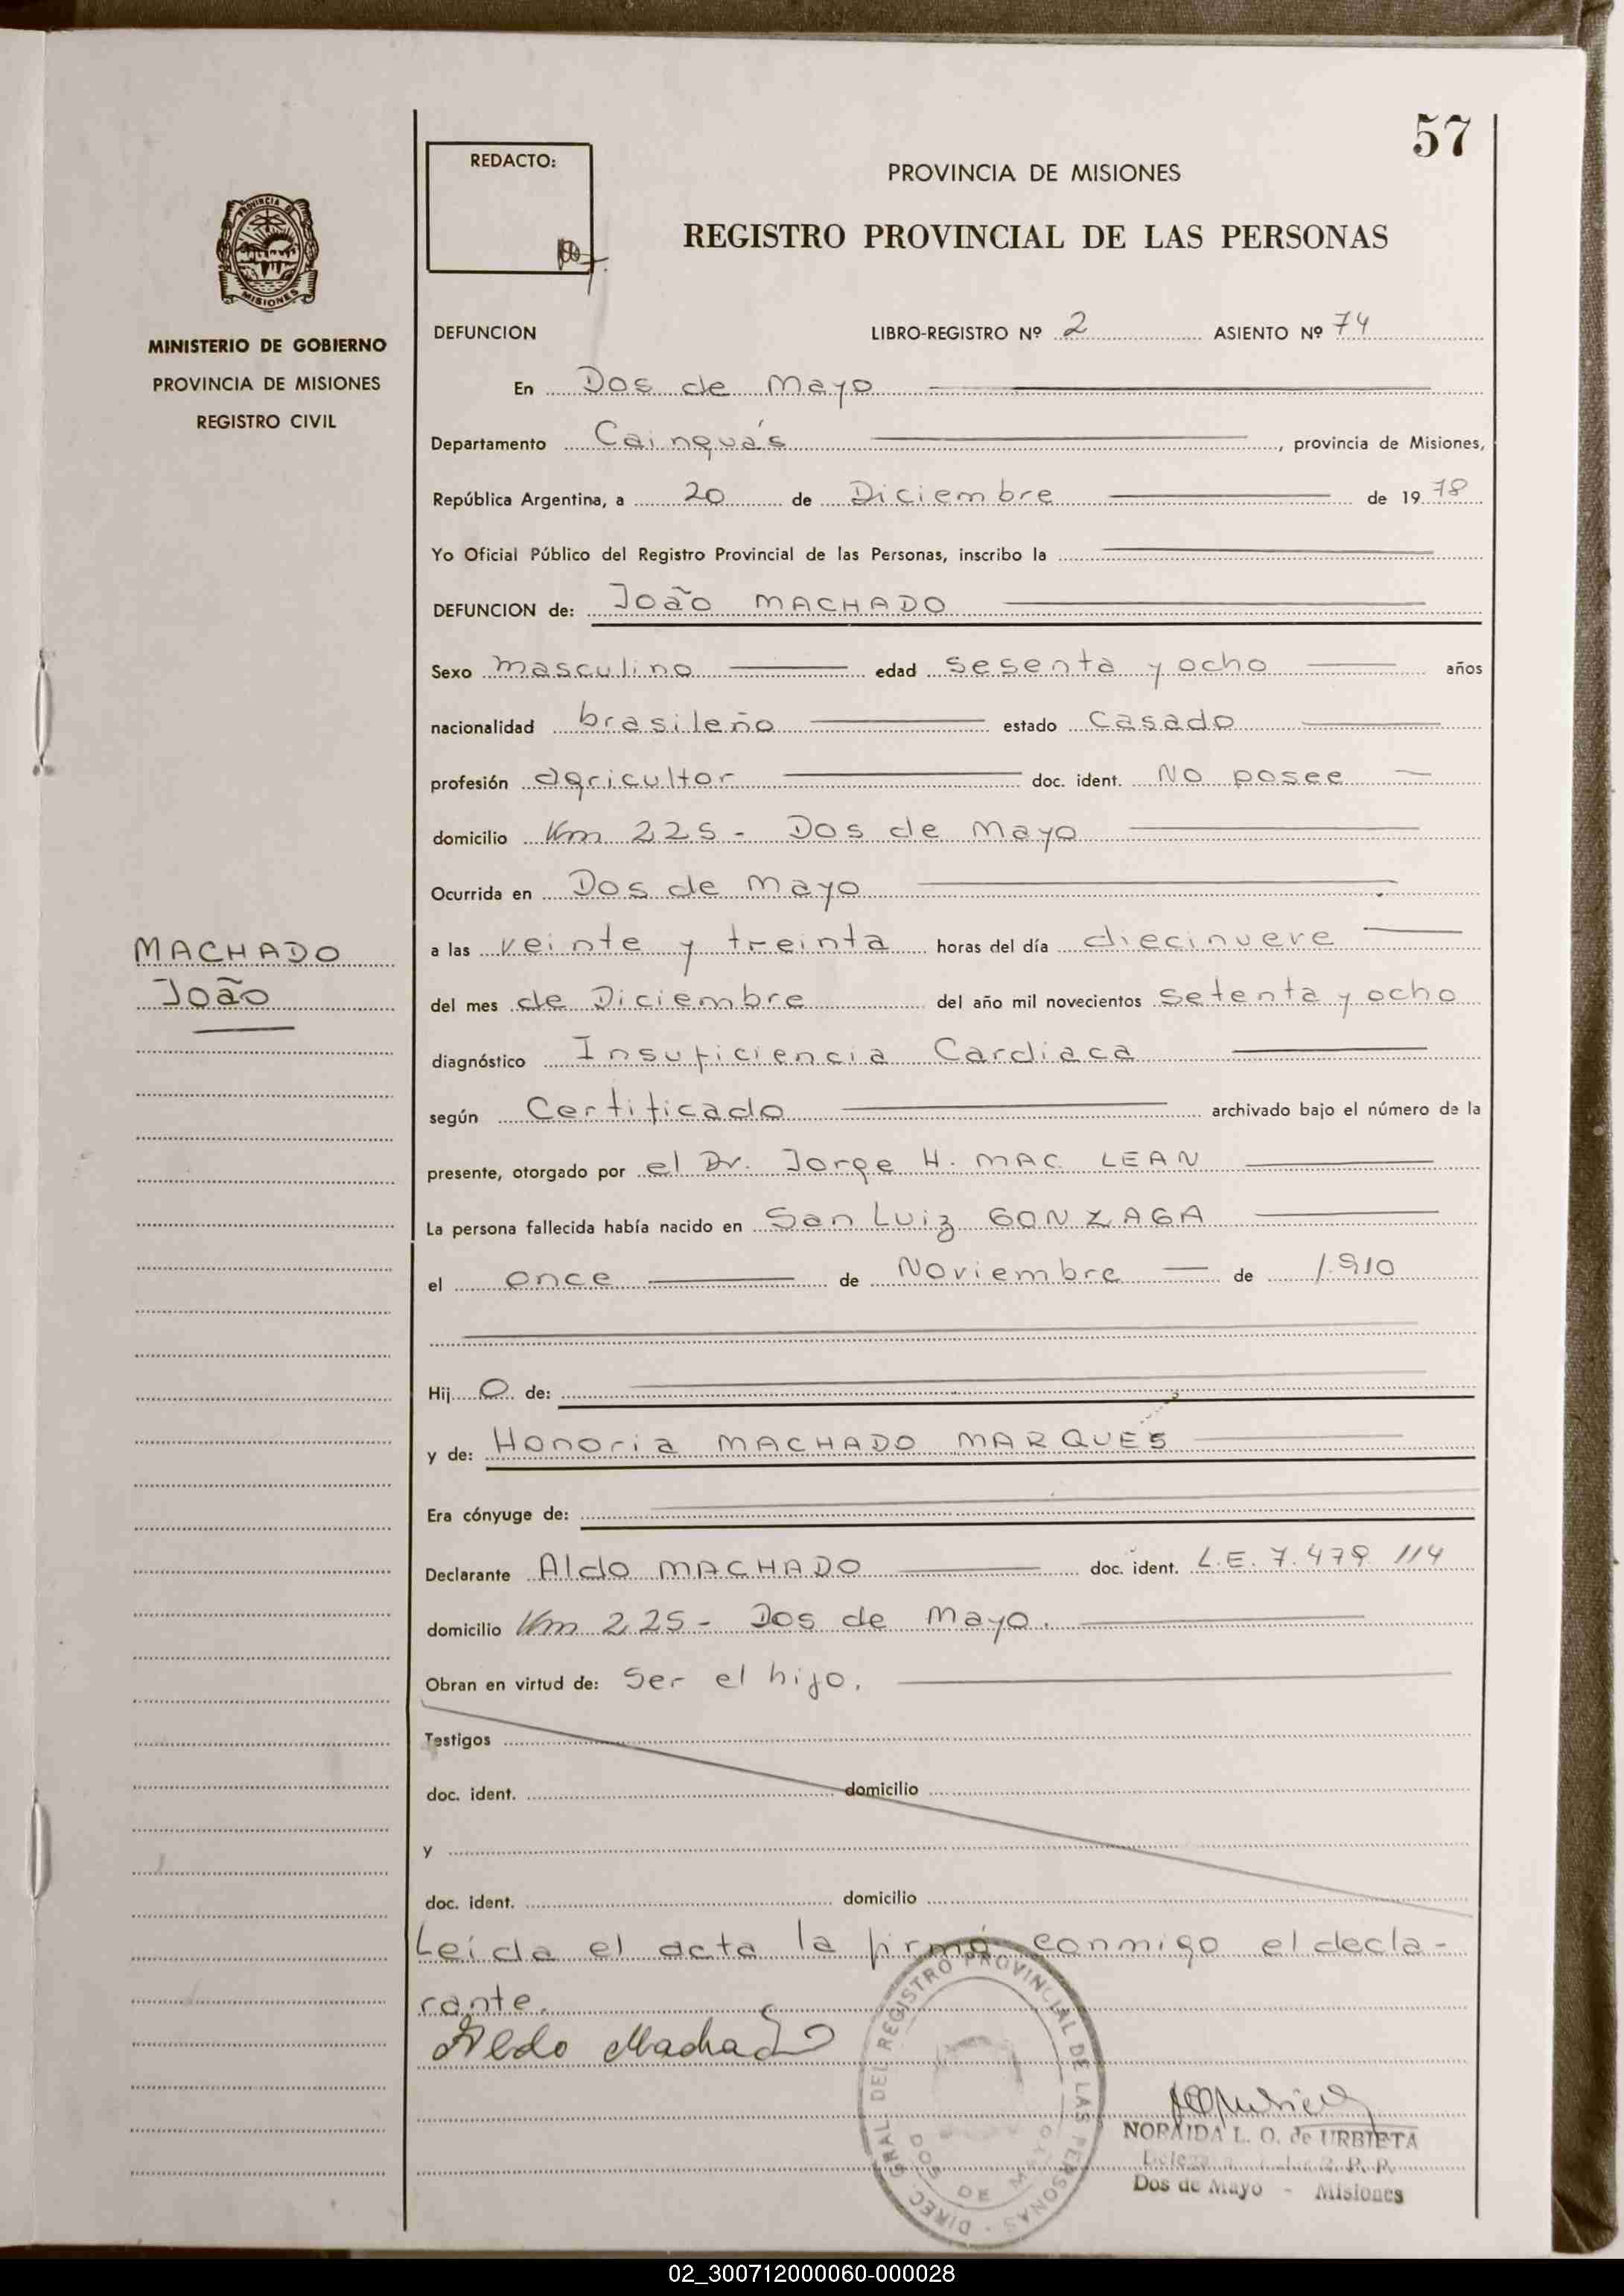 57
REDACTO:
PROVINCIA DE MISIONES
REGISTRO PROVINCIAL DE LAS PERSONAS
PROVINCIA DE
MISIONES
MINISTERIO DE GOBIERNO
PROVINCIA DE MISIONES
REGISTRO CIVIL
MACHADO
João
DEFUNCION LIBRO-REGISTRO Nº 2 ASIENTO Nº 74
En Dos de Mayo
Departamento Cainguás, provincia de Misiones,
República Argentina, a 20 de Diciembre de 1978
Yo Oficial Público del Registro Provincial de las Personas, inscribo la
DEFUNCION de: João MACHADO
Sexo masculino edad sesenta y ocho años
nacionalidad brasileño estado casado
profesión agricultor doc. ident. NO posee
domicilio Km 225 - Dos de Mayo
Ocurrida en Dos de Mayo
a las veinte y treinta horas del día diecinueve
del mes de Diciembre del año mil novecientos setenta y ocho
diagnóstico Insuficiencia Cardiaca
según Certificado archivado bajo el número de la
presente, otorgado por el Dr. Jorge H. MAC LEAN
La persona fallecida había nacido en San Luiz GONZAGA
el once de Noviembre de 1.910
Hijo de:
y de: Honoria MACHADO MARQUES
Era cónyuge de:
Declarante Aldo MACHADO doc. ident. L.E. 7.479.114
domicilio Km 225 - Dos de Mayo.
Obran en virtud de: Ser el hijo.
Testigos
doc. ident. domicilio
y
doc. ident. domicilio
Leída el acta la firmó conmigo el decla-
rante.
Aldo Machado
DIREC. GRAL DEL REGISTRO PROVINCIAL DE LAS PERSONAS
DOS DE MAYO
NORAIDA L. O. de URBIETA
R. P. P.
Dos de Mayo - Misiones
02_300712000060-000028